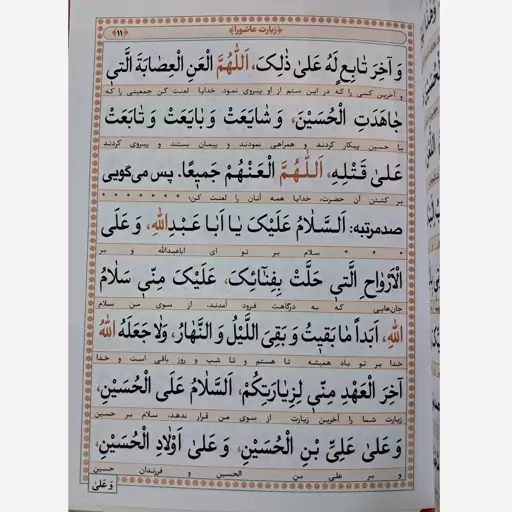 زیارت عاشورا ۱۱
وَ آخِرَ تٰابِعٍ لَهُ عَلیٰ ذٰلِکَ، اَللّٰهُمَّ الْعَنِ الْعِصٰابَةَ الَّتی
و آخرین کسی را که در این ستم از او پیروی نمود، خدایا لعنت کن جمعیتی را که
جٰاهَدَتِ الْحُسَیْنَ، وَ شٰایَعَتْ وَ بٰایَعَتْ وَ تٰابَعَتْ
با حسین پیکار کردند و همراهی نمودند و پیمان بستند و پیروی کردند
عَلیٰ قَتْلِهِ، اَللّٰهُمَّ الْعَنْهُمْ جَمیعًا. پس می‌گویی
بر کشتن آن حضرت، خدایا همه آنان را لعنت کن؛
صدمرتبه: اَلسَّلاٰمُ عَلَیْکَ یٰا اَبٰا عَبْدِاللّٰهِ، وَ عَلَی
سلام بر تو ای اباعبدالله و بر
الْاَرْوٰاحِ الَّتی حَلَّتْ بِفِنٰائِکَ، عَلَیْکَ مِنّی سَلاٰمُ
جان‌هایی که به درگاهت فرود آمدند، از سوی من سلام
اللّٰهِ، اَبَداً مٰا بَقیتُ وَ بَقِیَ اللَّیْلُ وَ النَّهٰارُ، وَلاٰ جَعَلَهُ اللّٰهُ
خدا بر تو باد همیشه تا هستم و تا شب و روز باقی است و خدا
آخِرَ الْعَهْدِ مِنّی لِزِیٰارَتِکُمْ، اَلسَّلاٰمُ عَلَی الْحُسَیْنِ،
زیارت شما را آخرین زیارت از سوی من قرار ندهد، سلام بر حسین
وَ عَلیٰ عَلِیِّ بْنِ الْحُسَیْنِ، وَ عَلیٰ اَوْلاٰدِ الْحُسَیْنِ،
و بر علی بن الحسین و فرزندان حسین
وَ عَلیٰ